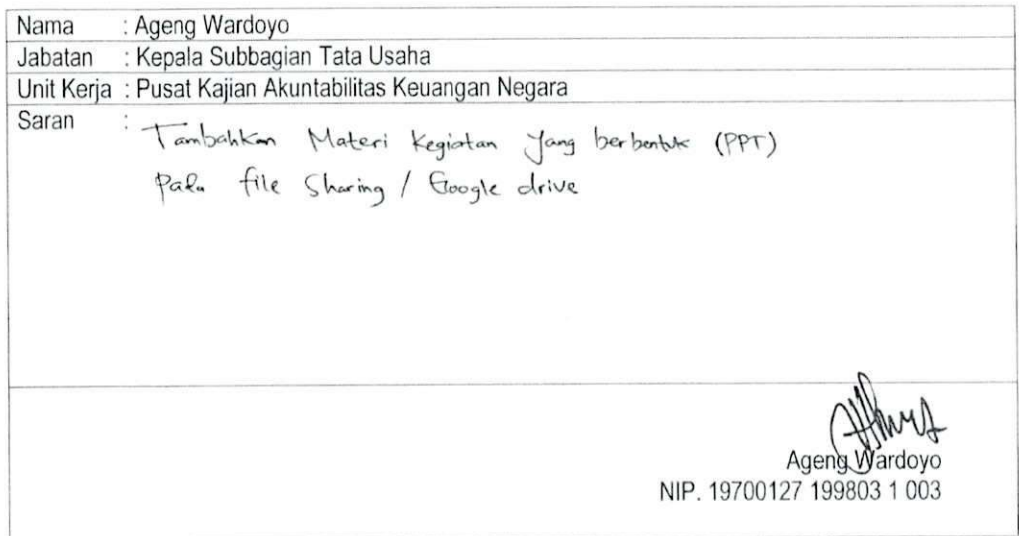 Nama : Ageng Wardoyo
Jabatan : Kepala Subbagian Tata Usaha
Unit Kerja : Pusat Kajian Akuntabilitas Keuangan Negara
Saran : Tambahkan Materi Kegiatan yang berbentuk (PPT)
Pada file Sharing / Google drive
Ageng Wardoyo
NIP. 19700127 199803 1 003